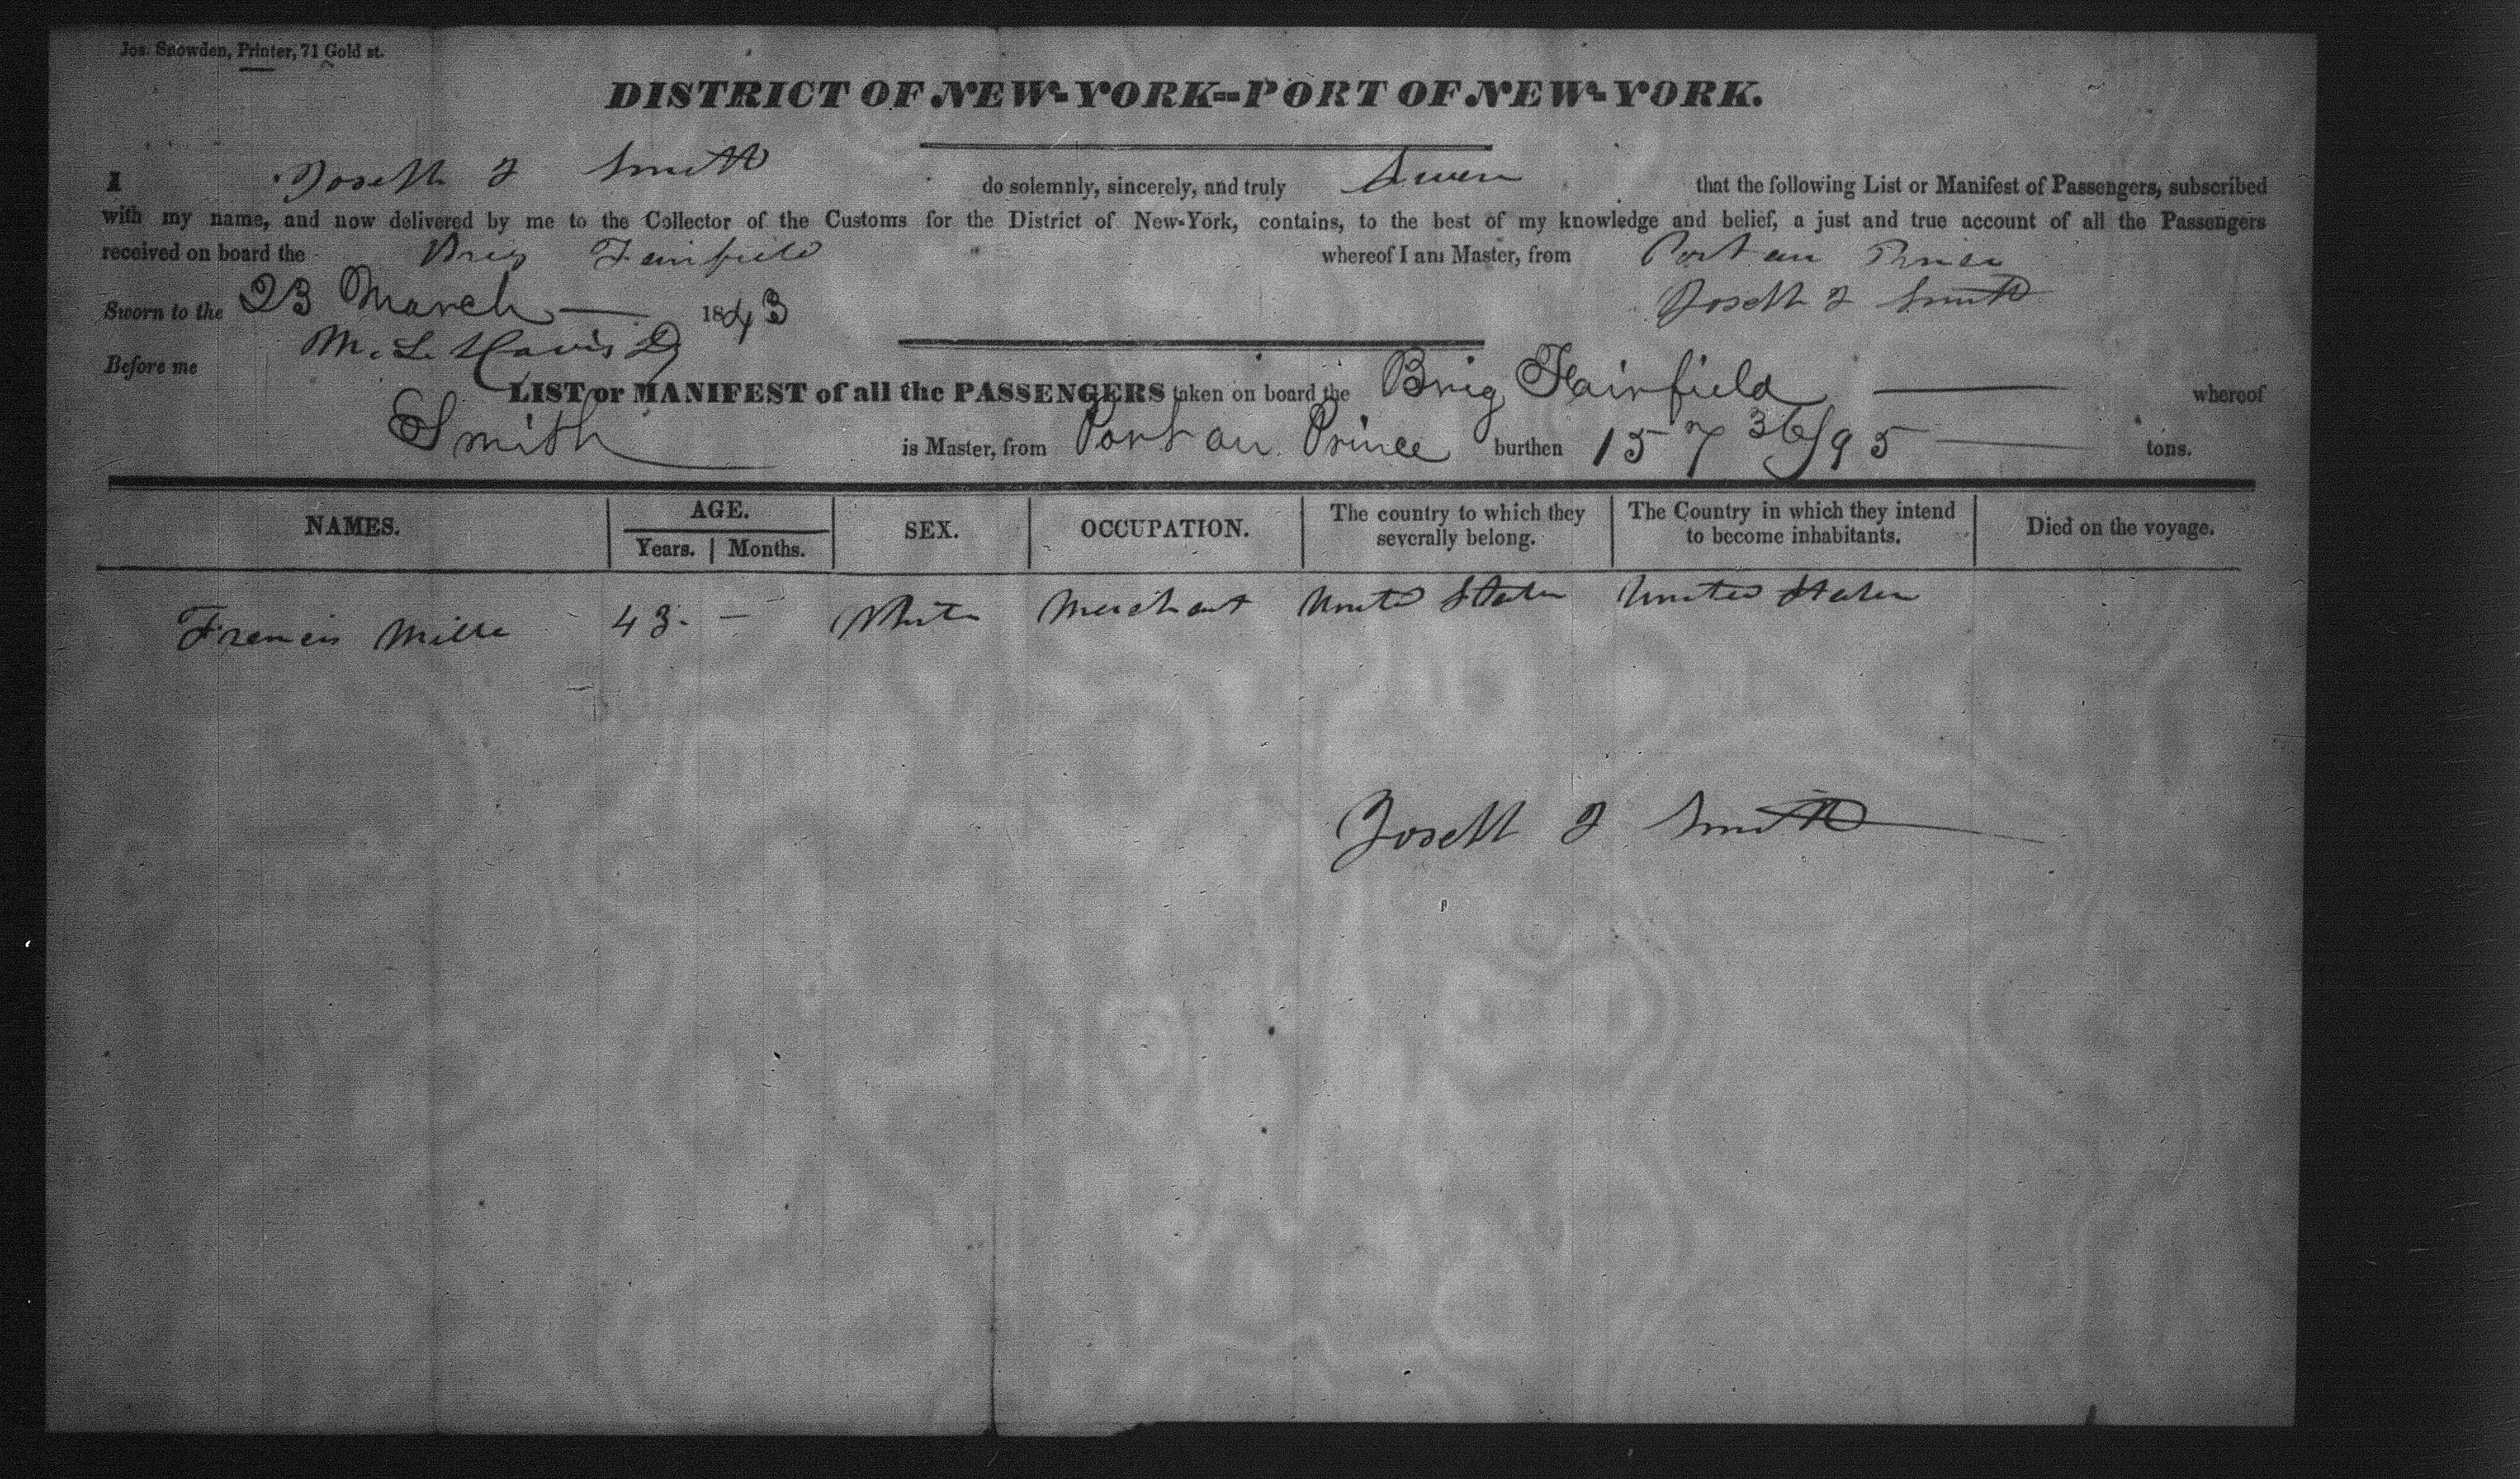 Jos. Snowden, Printer, 71 Gold st.
DISTRICT OF NEW-YORK--PORT OF NEW-YORK.
I Joseph J Smith do solemnly, sincerely, and truly Swear that the following List or Manifest of Passengers, subscribed
with my name, and now delivered by me to the Collector of the Customs for the District of New-York, contains, to the best of my knowledge and belief, a just and true account of all the Passengers
received on board the Brig Fairfield whereof I am Master, from Port au Prince
Sworn to the 23 March 1843 Joseph J Smith
Before me M. L. Davis
LIST or MANIFEST of all the PASSENGERS taken on board the Brig Fairfield whereof
Smith is Master, from Port au Prince burthen 157 36/95 tons.
NAMES. AGE. Years. Months. SEX. OCCUPATION. The country to which they severally belong. The Country in which they intend to become inhabitants. Died on the voyage.
Francis Mills 43. — White Merchant United States United States
Joseph J Smith